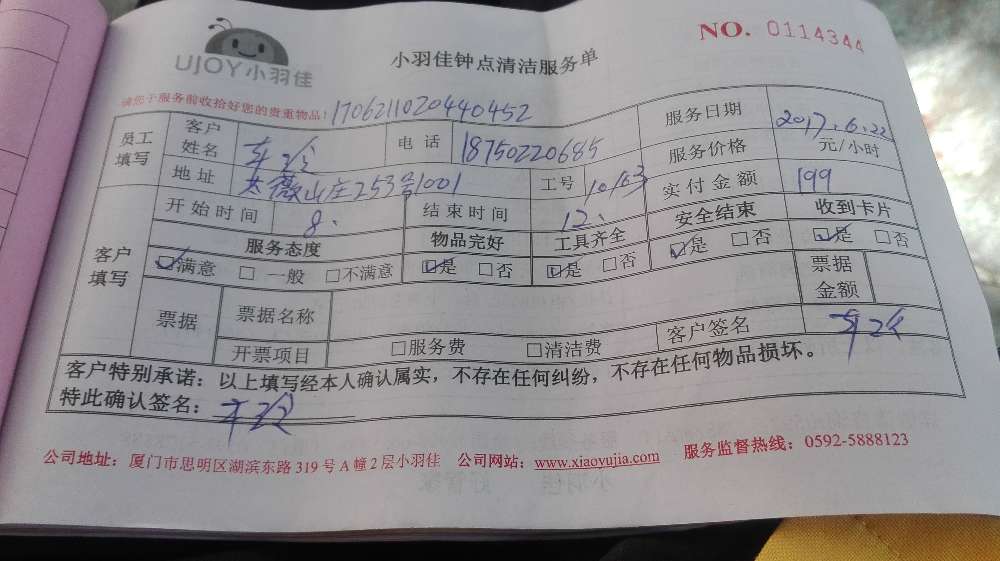 UJOY小羽佳
小羽佳钟点清洁服务单
NO. 0114344
请您于服务前收拾好您的贵重物品! 1706211020440452
员工填写 客户姓名 车 电话 18750220685 服务日期 2017.6.22
服务价格 元/小时
地址 太薇山庄253号1001 工号 10163 实付金额 199
客户填写 开始时间 8、 结束时间 12、 安全结束 收到卡片
服务态度 物品完好 工具齐全 ☑是 □否 ☑是 □否
☑满意 □一般 □不满意 ☑是 □否 ☑是 □否
票据 票据名称 票据金额
开票项目 □服务费 □清洁费 客户签名 车
客户特别承诺：以上填写经本人确认属实，不存在任何纠纷，不存在任何物品损坏。
特此确认签名： 车
公司地址：厦门市思明区湖滨东路319号A幢2层小羽佳 公司网站：www.xiaoyujia.com 服务监督热线：0592-5888123